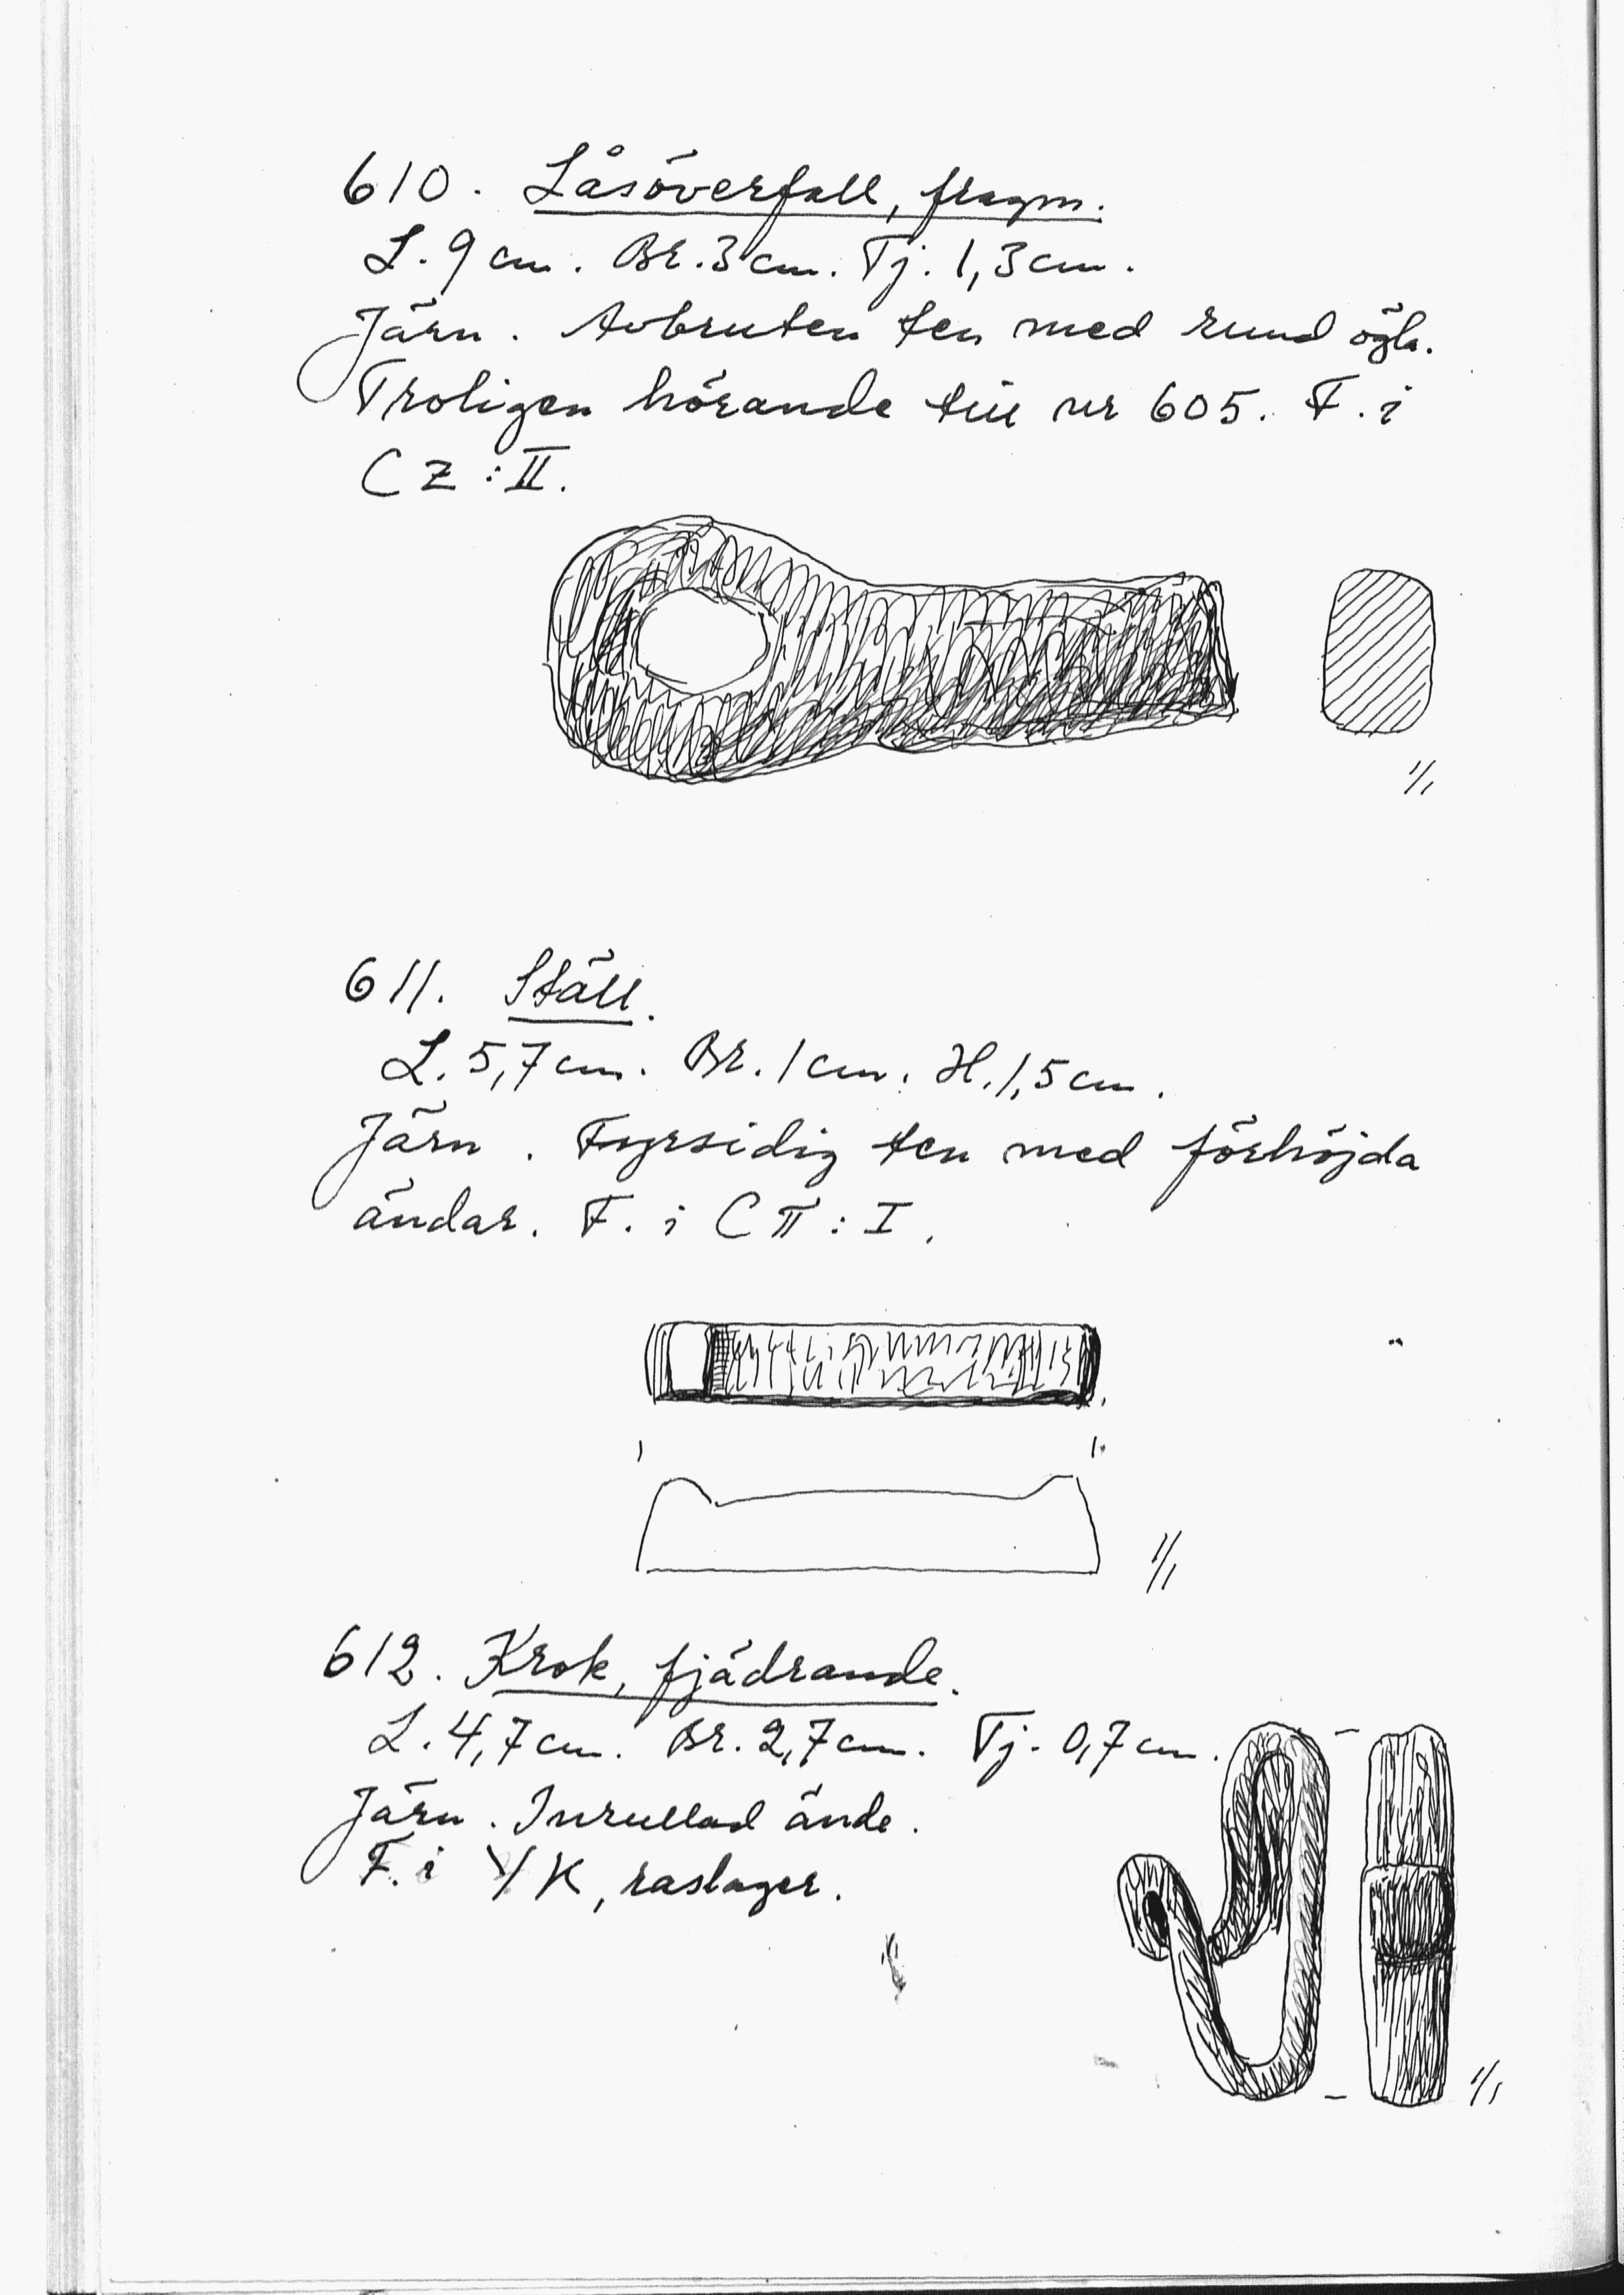 610. Låsöverfall, fragm.
L. 9 cm. Br. 3 cm. Tj. 1,3 cm.
Järn. Avbruten ten med rund ögla.
Troligen hörande till nr 605. F. i
CZ : II.
1/1
611. Ställ.
L. 5,7 cm. Br. 1 cm. H. 1,5 cm.
Järn. Fyrsidig ten med förhöjda
ändar. F. i C π : I.
1/1
612. Krok, fjädrande.
L. 4,7 cm. Br. 2,7 cm. Tj. 0,7 cm.
Järn. Inrullad ände.
F. i YK, raslager.
1/1